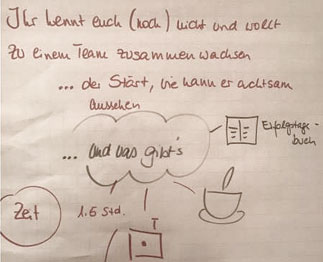 Ihr kennt euch (noch) nicht und wollt
zu einem Team zusammen wachsen
... der Start, wie kann er achtsam
aussehen
... und was gibt's
Erfolgstage-
buch
Zeit
1.5 Std.
T